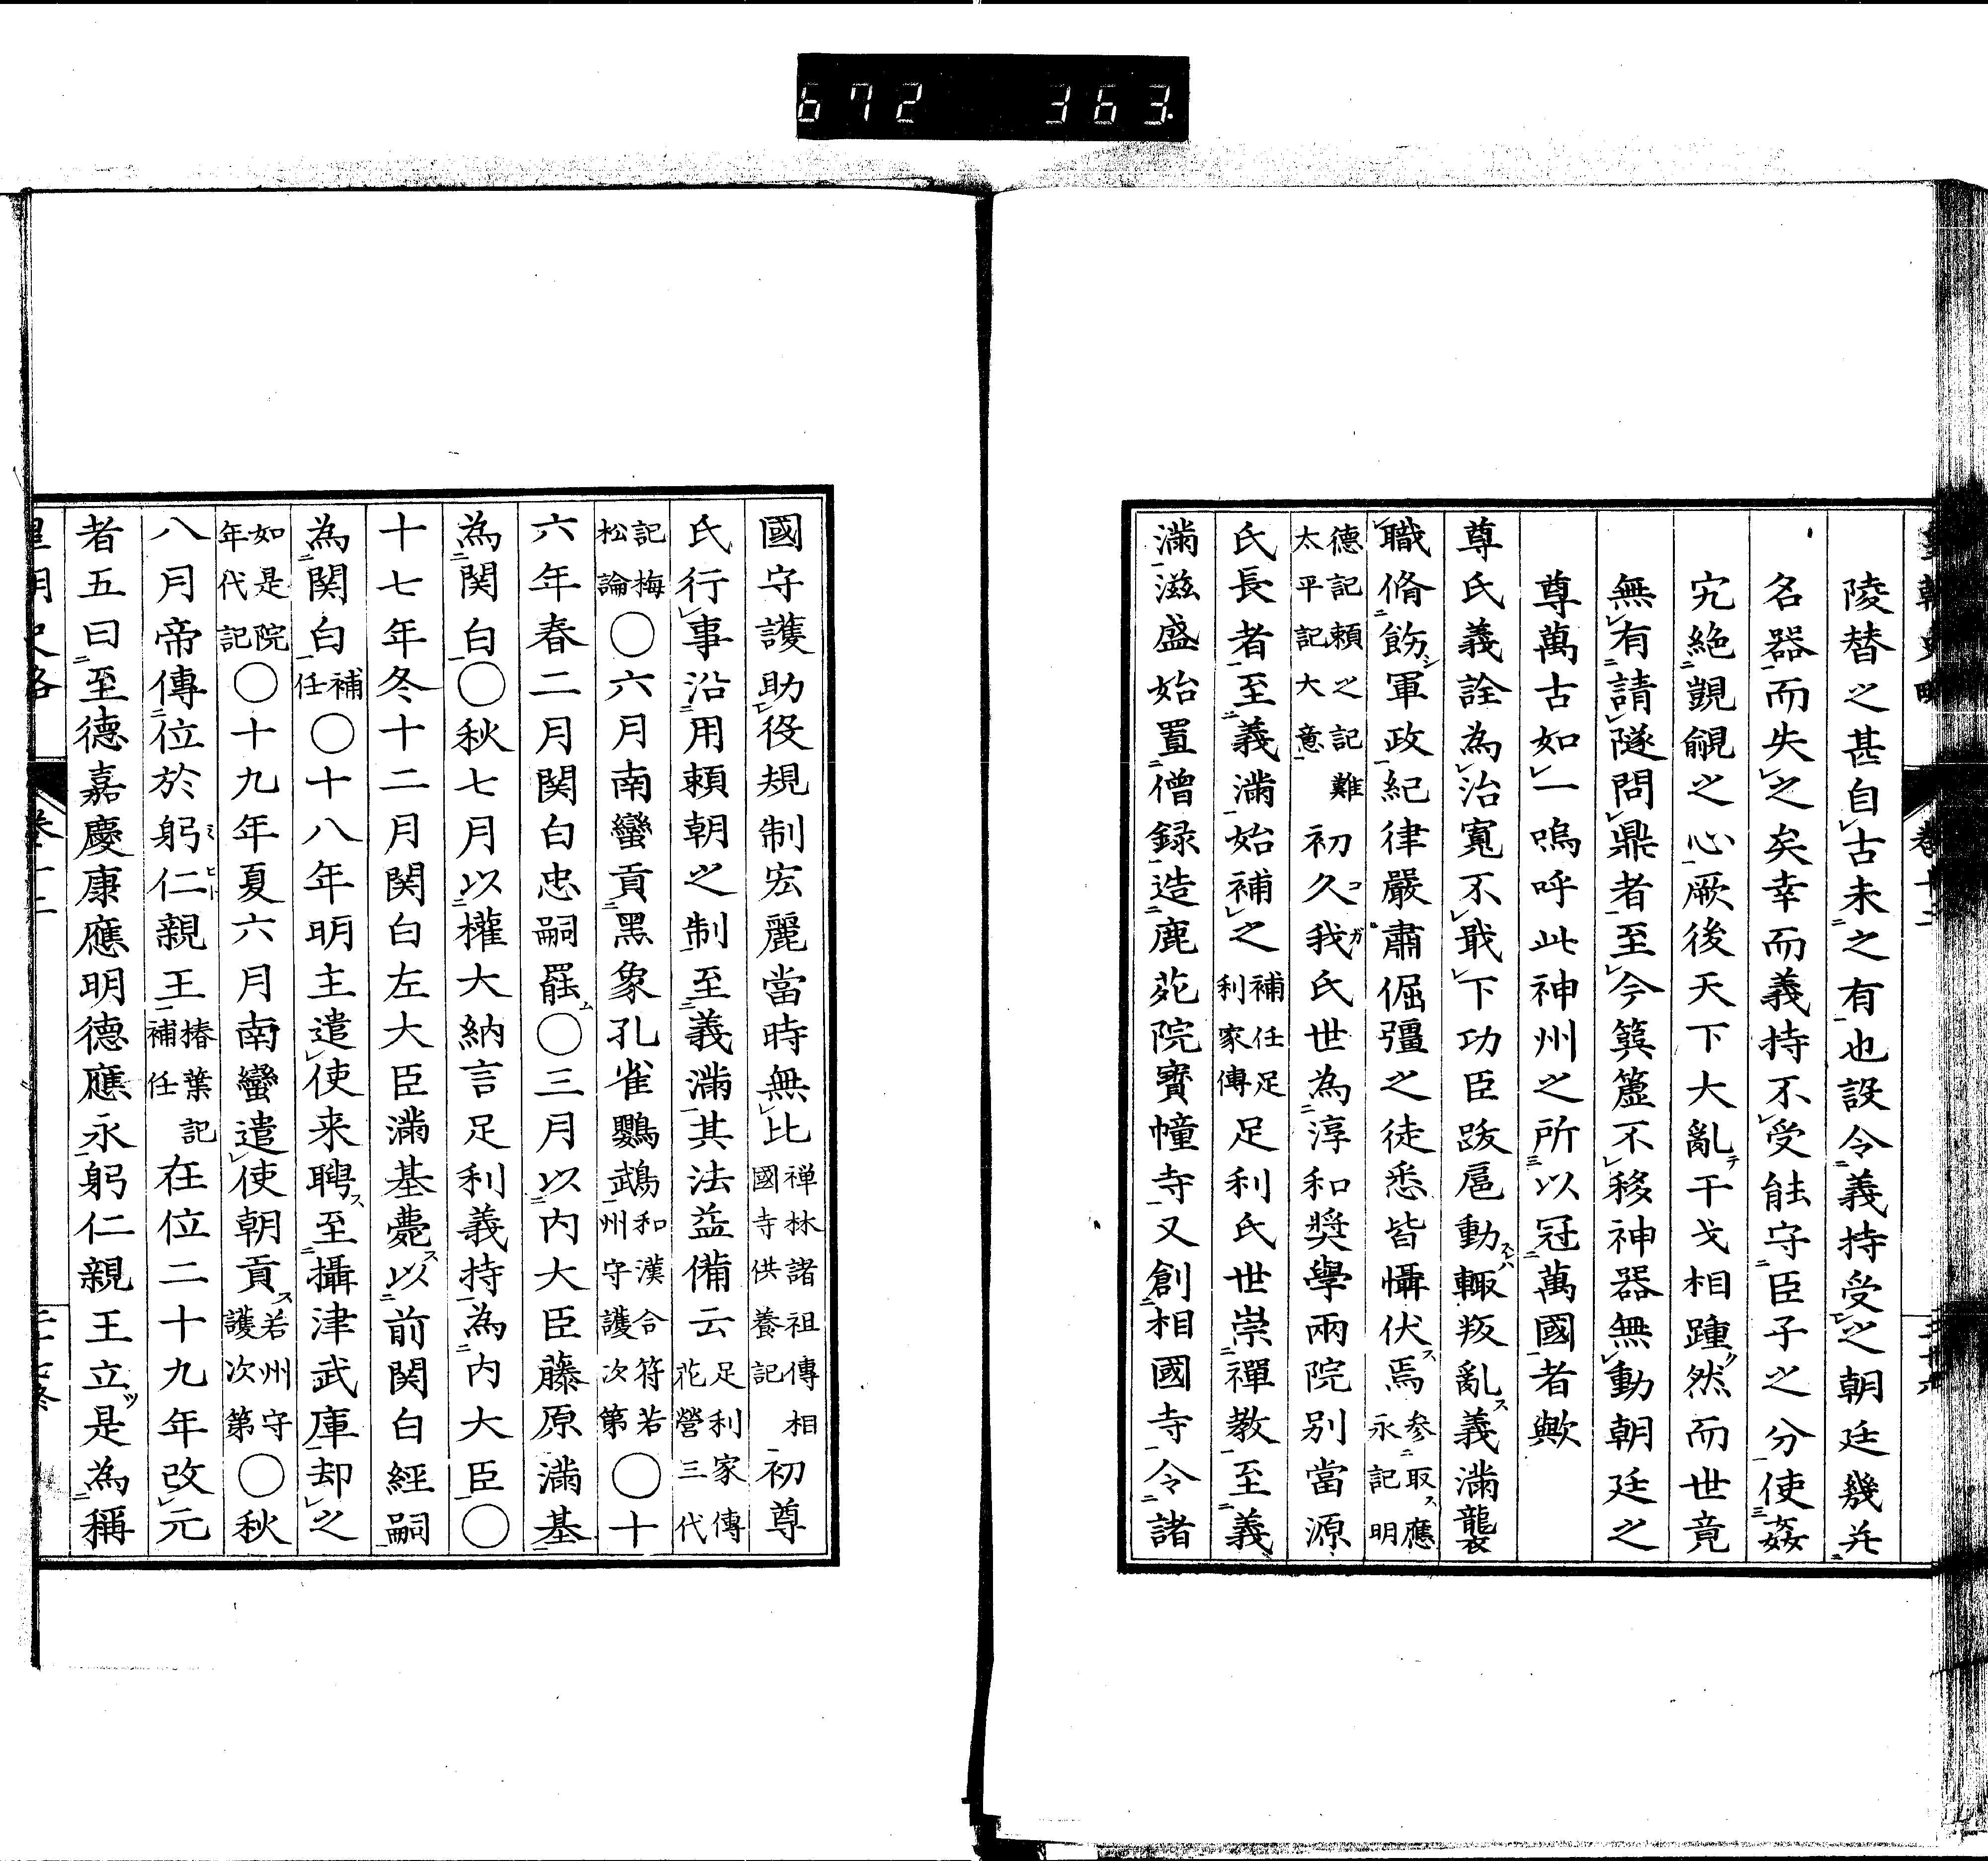 672 363
陵替之甚自古未之有也設令義持受之朝廷幾并
名器而失之矣幸而義持不受能守臣子之分使姦
宄絶覬覦之心厥後天下大亂干戈相踵然而世竟
無有請隧問鼎者至今簨簴不移神器無動朝廷之
尊萬古如一嗚呼此神州之所以冠萬國者歟
尊氏義詮為治寬不戢下功臣跋扈動輙叛亂義滿襲
職脩飭軍政紀律嚴肅倔彊之徒悉皆懾伏焉参取應永記明
德記頼之記難太平記大意初久我氏世為淳和奨學兩院别當源
氏長者至義滿始補之補任足利家傳足利氏世崇禪教至義
滿滋盛始置僧録造鹿苑院寳幢寺又創相國寺令諸
國守護助役規制宏麗當時無比禅林諸祖傳相國寺供養記初尊
氏行事沿用頼朝之制至義滿其法益備云足利家傳花營三代
記梅松論〇六月南蠻貢黑象孔雀鸚鵡和漢合符若州守護次第〇十
六年春二月関白忠嗣罷〇三月以内大臣藤原滿基
為関白〇秋七月以權大納言足利義持為内大臣〇
十七年冬十二月関白左大臣滿基薨以前関白經嗣
為関白補任〇十八年明主遣使来聘至攝津武庫却之
如是院年代記〇十九年夏六月南蠻遣使朝貢若州守護次第〇秋
八月帝傳位於躬仁親王椿葉記補任在位二十九年改元
者五曰至德嘉慶康應明德應永躬仁親王立是為稱